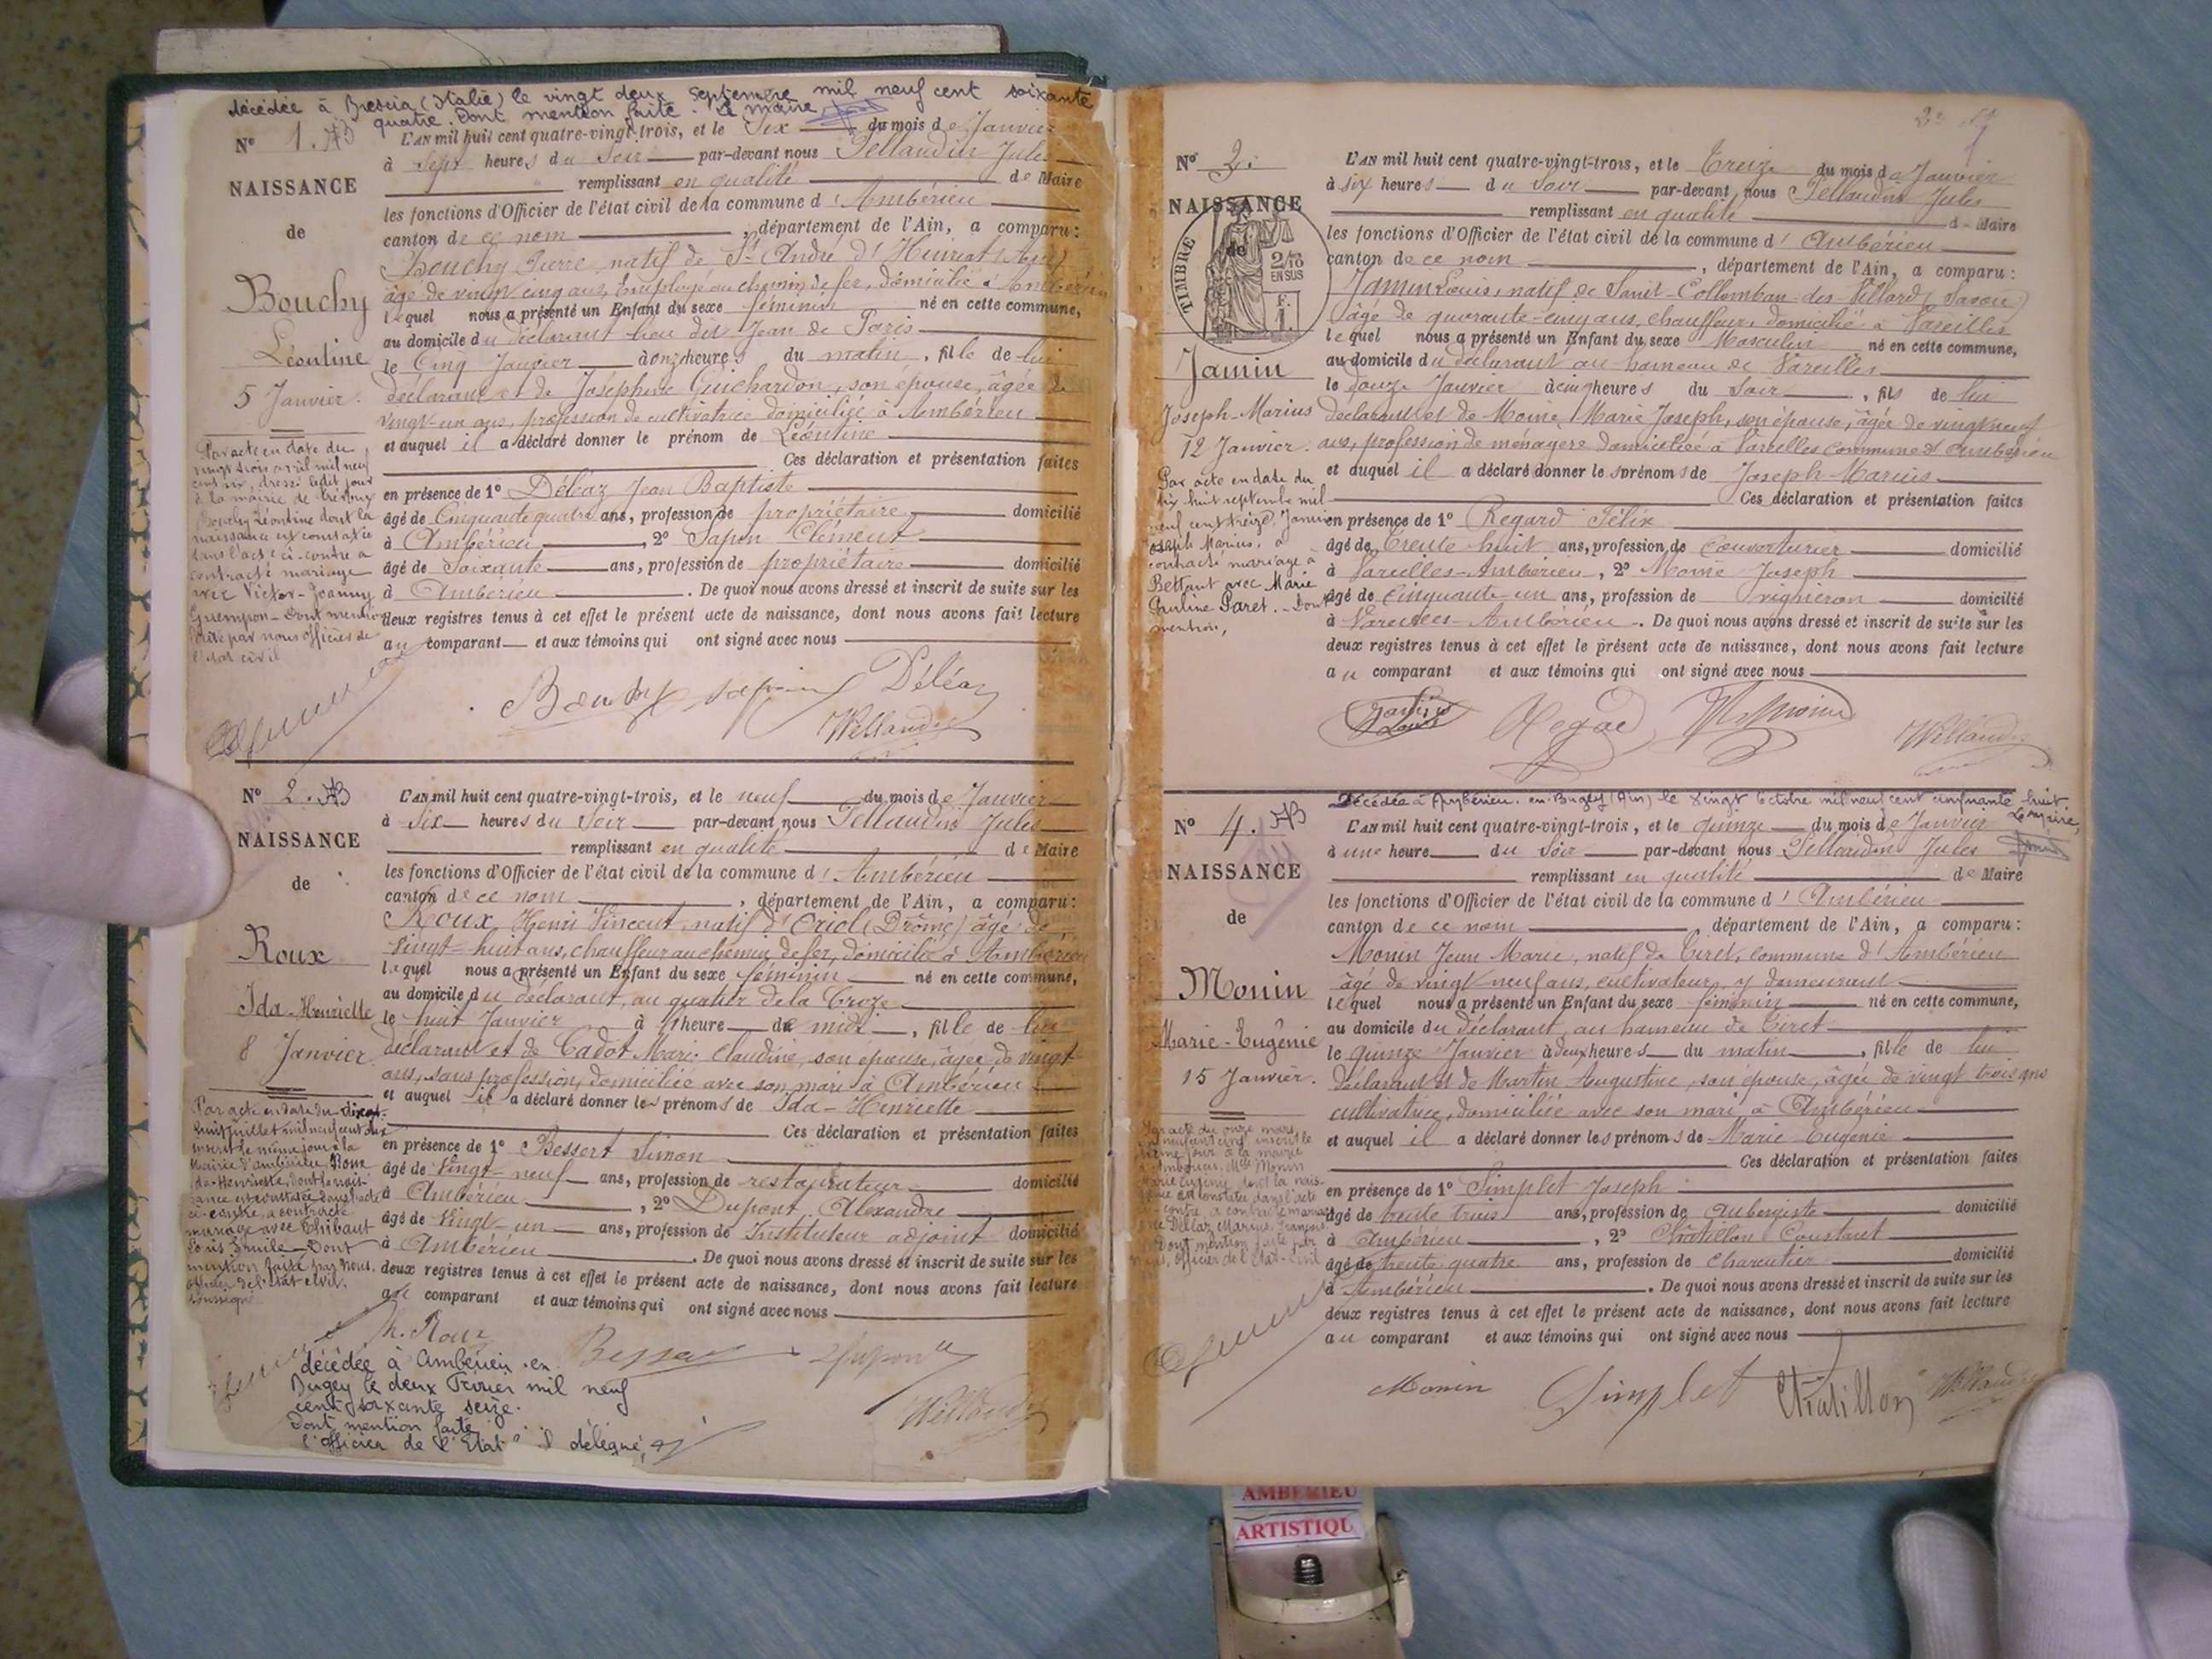 décédée à Brescia (Italie) le vingt deux septembre mil neuf cent soixante
quatre. Dont mention faite. Le maire
N° 1. AB
NAISSANCE
de
Bouchy
Léontine
5 Janvier.
L'AN mil huit cent quatre-vingt-trois, et le Six du mois de Janvier
à Sept heures du Soir par-devant nous Pellaudin Jules
remplissant en qualité de Maire
les fonctions d'Officier de l'état civil de la commune d'Ambérieu
canton de ce nom, département de l'Ain, a comparu:
Bouchy Pierre, natif de St André d'Huiriat (Ain)
âgé de vingt cinq ans, Employé au chemin de fer, domicilié à Ambérieu
lequel nous a présenté un Enfant du sexe féminin né en cette commune,
au domicile du déclarant lieu dit Jean de Paris
le Cinq Janvier à onz heures du matin, fille de lui
déclarant et de Joséphine Guichardon, son épouse, âgée de
vingt-un ans, profession de cultivatrice domiciliée à Ambérieu
et auquel il a déclaré donner le prénom de Léontine
Ces déclaration et présentation faites
en présence de 1° Déléaz Jean Baptiste
âgé de Cinquante quatre ans, profession de propriétaire domicilié
à Ambérieu, 2° Sapin Clément
âgé de Soixante ans, profession de propriétaire domicilié
à Ambérieu. De quoi nous avons dressé et inscrit de suite sur les
deux registres tenus à cet effet le présent acte de naissance, dont nous avons fait lecture
au comparant et aux témoins qui ont signé avec nous
Par acte en date du
vingt trois avril mil neuf
cent six, dressé ledit jour
à la mairie de Trévoux
Bouchy Léontine dont la
naissance est constatée
dans l'acte ci-contre a
contracté mariage
avec Victor-Joanny
Guempon - Dont mention
faite par nous officier de
l'état civil
Bouchy Sapin Déléaz
Pellaudin
N° 2. AB
NAISSANCE
de
Roux
Ida-Henriette
8 Janvier.
L'AN mil huit cent quatre-vingt-trois, et le neuf du mois de Janvier
à Six heures du Soir par-devant nous Pellaudin Jules
remplissant en qualité de Maire
les fonctions d'Officier de l'état civil de la commune d'Ambérieu
canton de ce nom, département de l'Ain, a comparu:
Roux Henri Vincent, natif d'Oriol (Drôme) âgé de
vingt-huit ans, chauffeur au chemin de fer, domicilié à Ambérieu
lequel nous a présenté un Enfant du sexe féminin né en cette commune,
au domicile du déclarant, au quartier de la Croze
le huit Janvier à 1 heure de midi, fille de lui
déclarant et de Cadot Marie Claudine, son épouse, âgée de vingt
ans, sans profession, domiciliée avec son mari à Ambérieu
et auquel il a déclaré donner les prénoms de Ida-Henriette
Ces déclaration et présentation faites
en présence de 1° Bessert Simon
âgé de Vingt-neuf ans, profession de restaurateur domicilié
à Ambérieu, 2° Dupont Alexandre
âgé de Vingt-un ans, profession de Instituteur adjoint domicilié
à Ambérieu. De quoi nous avons dressé et inscrit de suite sur les
deux registres tenus à cet effet le présent acte de naissance, dont nous avons fait lecture
au comparant et aux témoins qui ont signé avec nous
Par acte en date du
huit juillet mil neuf cent dix
inscrit le même jour à la
Mairie d'Ambérieu, Roux
Ida-Henriette, dont la nais-
sance est constatée dans l'acte
ci-contre, a contracté
mariage avec Thibaut
Louis Emile - Dont
mention faite par nous
officier de l'état civil.
soussigné
h. Roux
décédée à Ambérieu-en
Bugey le deux Février mil neuf
cent soixante seize.
Dont mention faite
l'officier de l'Etat délégué,
N° 2.
NAISSANCE
de
TIMBRE
2/10
EN SUS
F.
1.
Jamin
Joseph-Marius
12 Janvier.
L'AN mil huit cent quatre-vingt-trois, et le Treize du mois de Janvier
à six heures du Soir par-devant nous Pellaudin Jules
remplissant en qualité de Maire
les fonctions d'Officier de l'état civil de la commune d'Ambérieu
canton de ce nom, département de l'Ain, a comparu:
Jamin Louis, natif de Saint-Collomban-des-Villard (Savoie)
âgé de quarante-cinq ans, chauffeur, domicilié à Vareilles
lequel nous a présenté un Enfant du sexe Masculin né en cette commune,
au domicile du déclarant au hameau de Vareilles
le douze Janvier à cinq heures du Soir, fils de lui
déclarant et de Moine Marie Joseph, son épouse, âgée de vingt neuf
ans, profession de ménagère domiciliée à Vareilles commune d'Ambérieu
et auquel il a déclaré donner les prénoms de Joseph-Marius
Ces déclaration et présentation faites
en présence de 1° Regard Félix
âgé de Trente huit ans, profession de Couverturier domicilié
à Vareilles-Ambérieu, 2° Moine Joseph
âgé de Cinquante un ans, profession de vigneron domicilié
à Vareilles-Ambérieu. De quoi nous avons dressé et inscrit de suite sur les
deux registres tenus à cet effet le présent acte de naissance, dont nous avons fait lecture
au comparant et aux témoins qui ont signé avec nous
Par acte en date du
dix huit septembre mil
neuf cent treize, Jamin
Joseph Marius, a
contracté mariage à
Bettant avec Marie
Pauline Paret. Dont
mention,
Jamin Louis
Pellaudin
Décédée à Ambérieu-en-Bugey (Ain) le vingt Octobre mil neuf cent cinquante huit
Le Maire,
N° 4. AB
NAISSANCE
de
Monin
Marie-Eugénie
15 Janvier.
L'AN mil huit cent quatre-vingt-trois, et le quinze du mois de Janvier
à une heure du Soir par-devant nous Pellaudin Jules
remplissant en qualité de Maire
les fonctions d'Officier de l'état civil de la commune d'Ambérieu
canton de ce nom, département de l'Ain, a comparu:
Monin Jean Marie, natif de Tiret, commune d'Ambérieu
âgé de vingt neuf ans, cultivateur, y demeurant
lequel nous a présenté un Enfant du sexe féminin né en cette commune,
au domicile du déclarant, au hameau de Tiret
le quinze Janvier à deux heures du matin, fille de lui
déclarant et de Martin Augustine, son épouse, âgée de vingt trois ans
cultivatrice, domiciliée avec son mari, à Ambérieu
et auquel il a déclaré donner les prénoms de Marie Eugénie
Ces déclaration et présentation faites
en présence de 1° Simplet Joseph
âgé de trente trois ans, profession de Aubergiste domicilié
à Ambérieu, 2° Châtillon Constant
âgé de trente quatre ans, profession de Charcutier domicilié
à Ambérieu. De quoi nous avons dressé et inscrit de suite sur les
deux registres tenus à cet effet le présent acte de naissance, dont nous avons fait lecture
au comparant et aux témoins qui ont signé avec nous
Monin Simplet Châtillon Pellaudin
AMBERIEU
ARTISTIQU